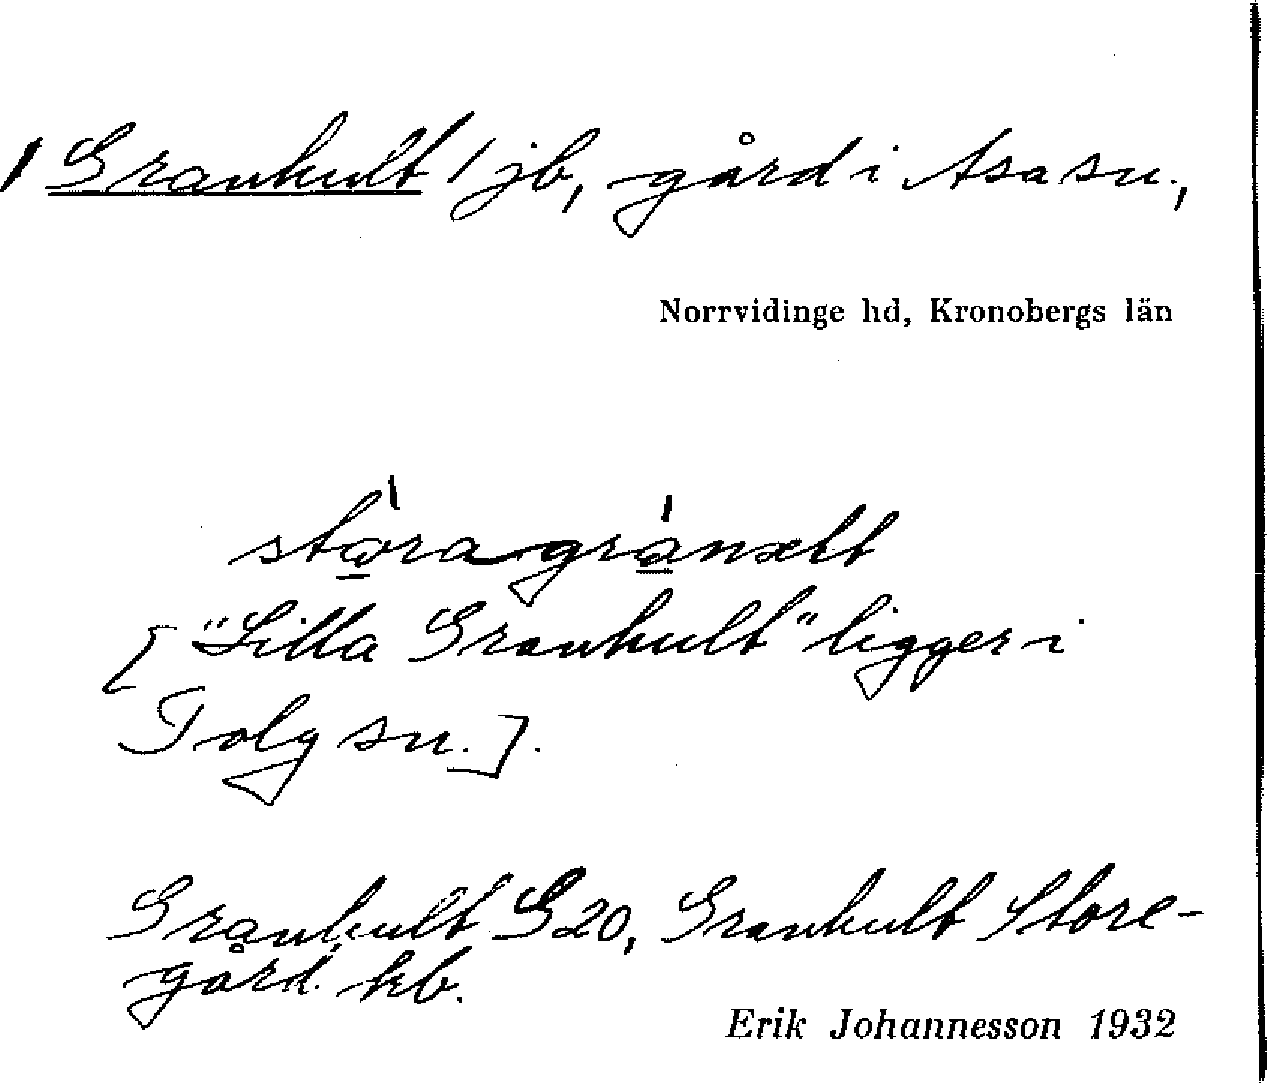 / Grankult / jb, gård i Asa sn.,
Norrvidinge hd, Kronobergs län
stǫ̀ragrànælt
["Lilla Grankult" ligger i
Tolg sn.].
Grankult G20, Grankult Store-
gård kb.
Erik Johannesson 1932